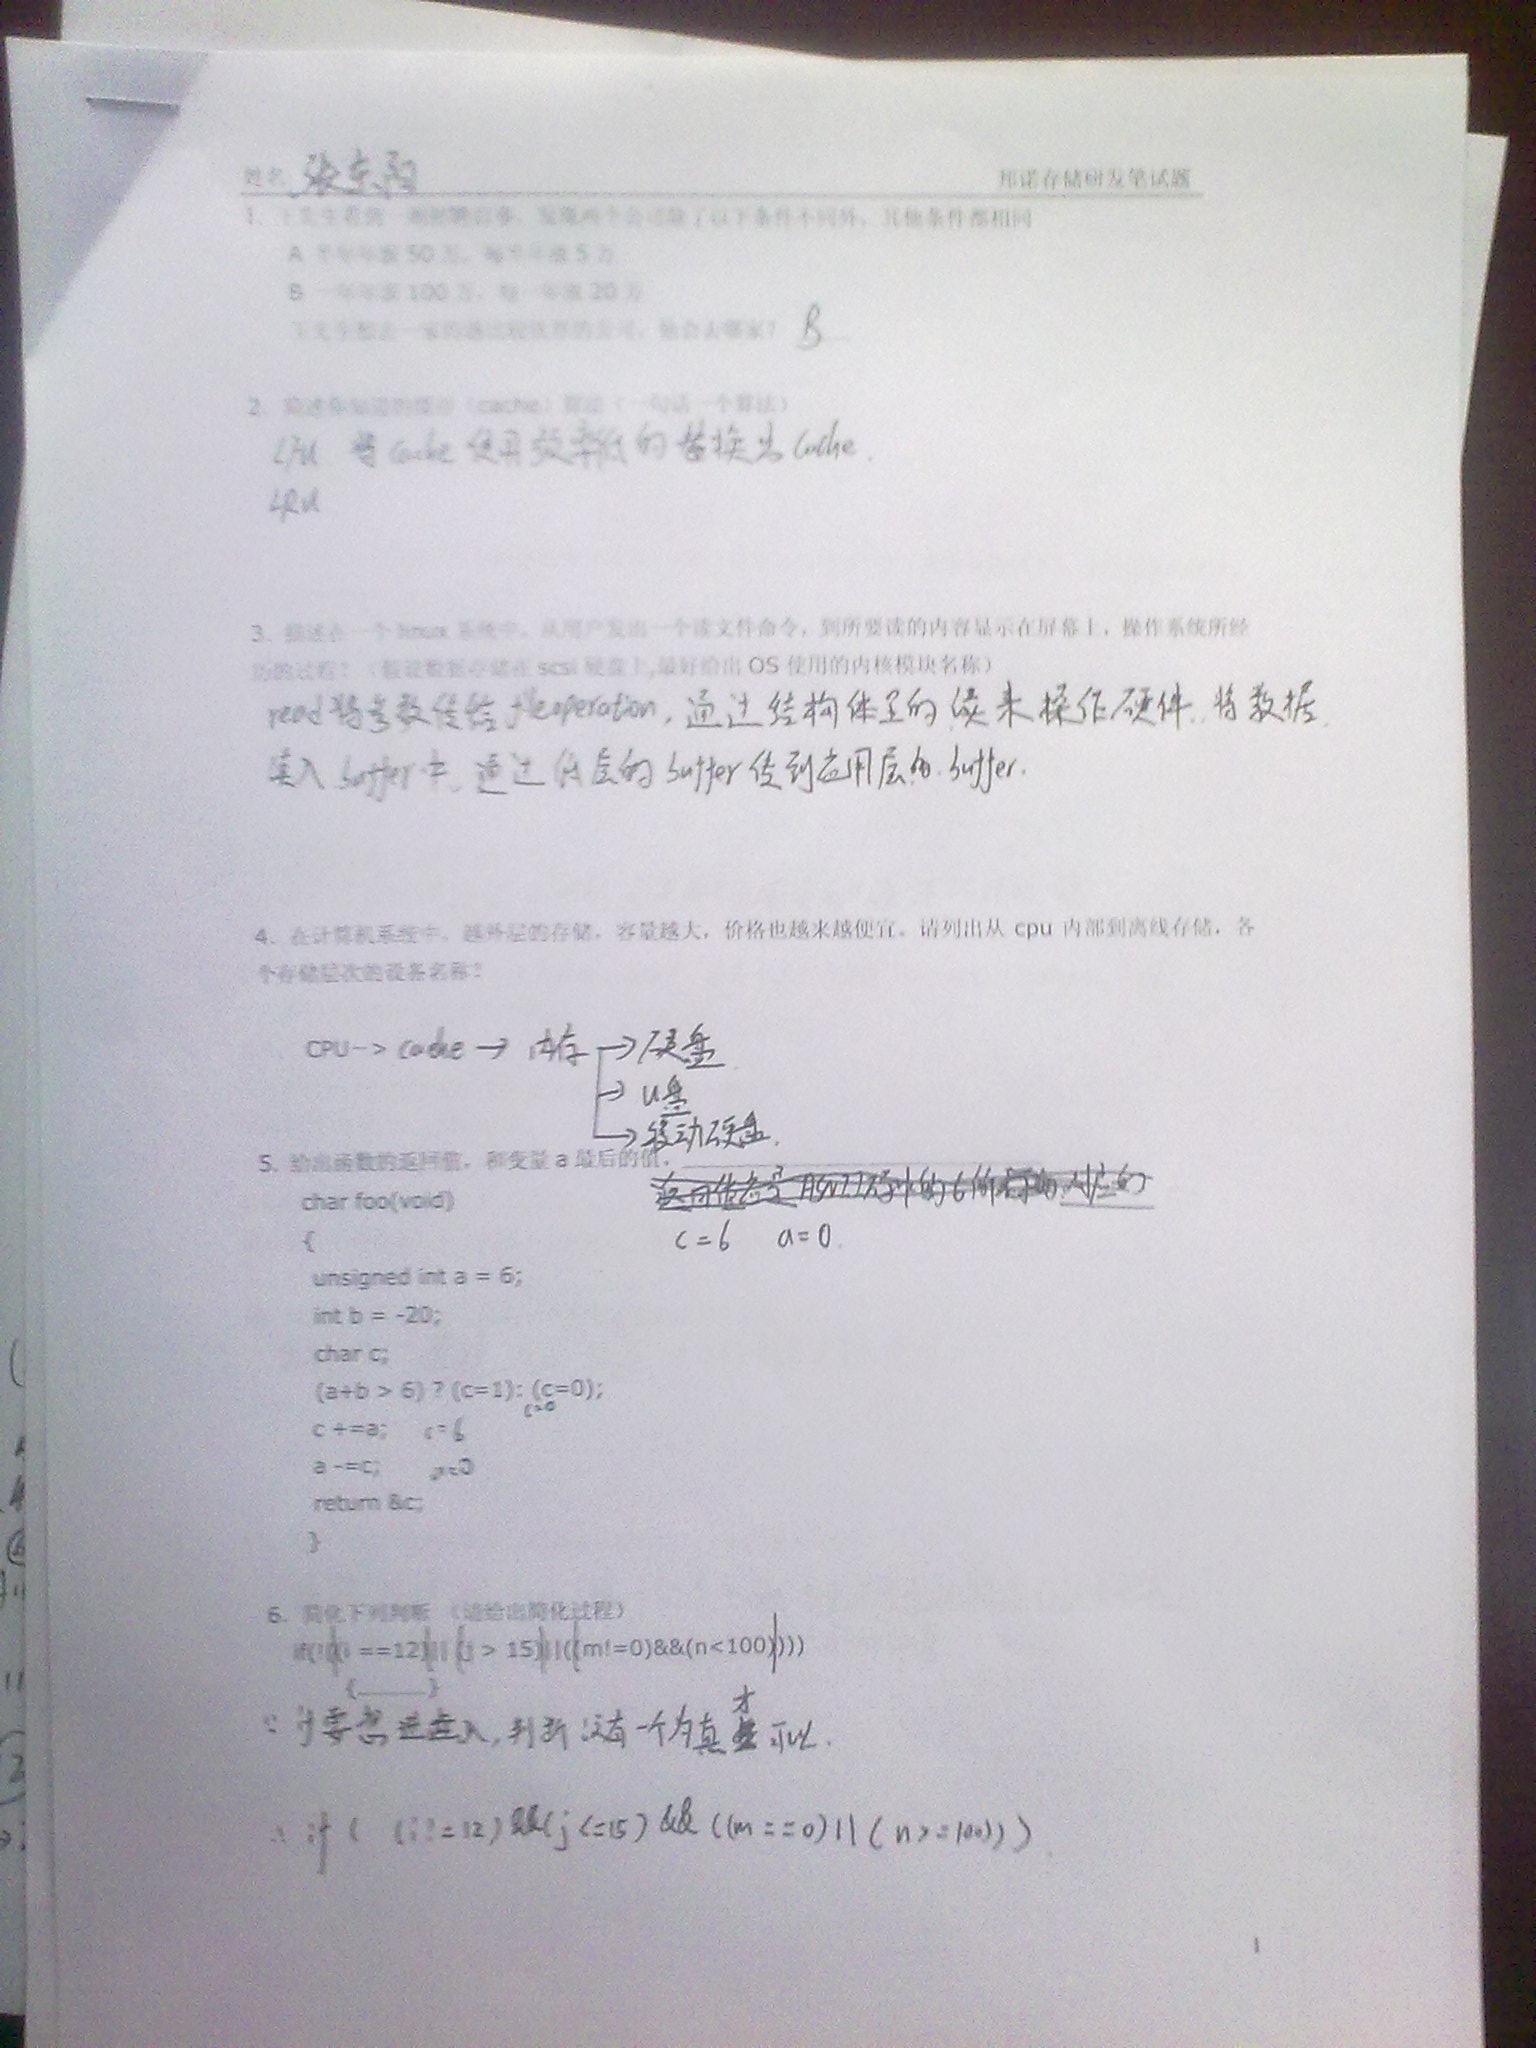 姓名 张东阳 邦诺存储研发笔试题
1. 发现两个公司除了以下条件不同外，其他条件都相同
A 半年年薪 50 万，每半年涨 5 万
B 一年年薪 100 万，每一年涨 20 万
他会去哪家？ B
2. 简述你知道的缓存（cache）算法（一句话一个算法）
LFU 将 cache 使用效率低的替换出 cache.
LRU
3. 描述在一个 linux 系统中，从用户发出一个读文件命令，到所要读的内容显示在屏幕上，操作系统所经
历的过程？（假设数据存储在 scsi 硬盘上,最好给出 OS 使用的内核模块名称）
read 将参数传给 fileoperation, 通过结构体里的 读来操作硬件. 将数据
读入 buffer 中. 通过低层的 buffer 传到应用层的 buffer.
4. 在计算机系统中，越外层的存储，容量越大，价格也越来越便宜。请列出从 cpu 内部到离线存储，各
个存储层次的设备名称？
CPU-> cache → 内存 → 硬盘
→ U盘
→ 移动硬盘.
5. 给出函数的返回值，和变量 a 最后的值。
char foo(void)
{ c=6 a=0.
unsigned int a = 6;
int b = -20;
char c;
(a+b > 6) ? (c=1): (c=0);
c=0
c +=a; c=6
a -=c; a=0
return &c;
}
6. 简化下列判断 （请给出简化过程）
if(!((i ==12)||(j > 15)||((m!=0)&&(n<100))))
{ }
∵ 要想进入, 判断没有一个为真才可以.
∴ if ( (i!=12) &&(j<=15) && ((m==0)||(n>=100)))
1